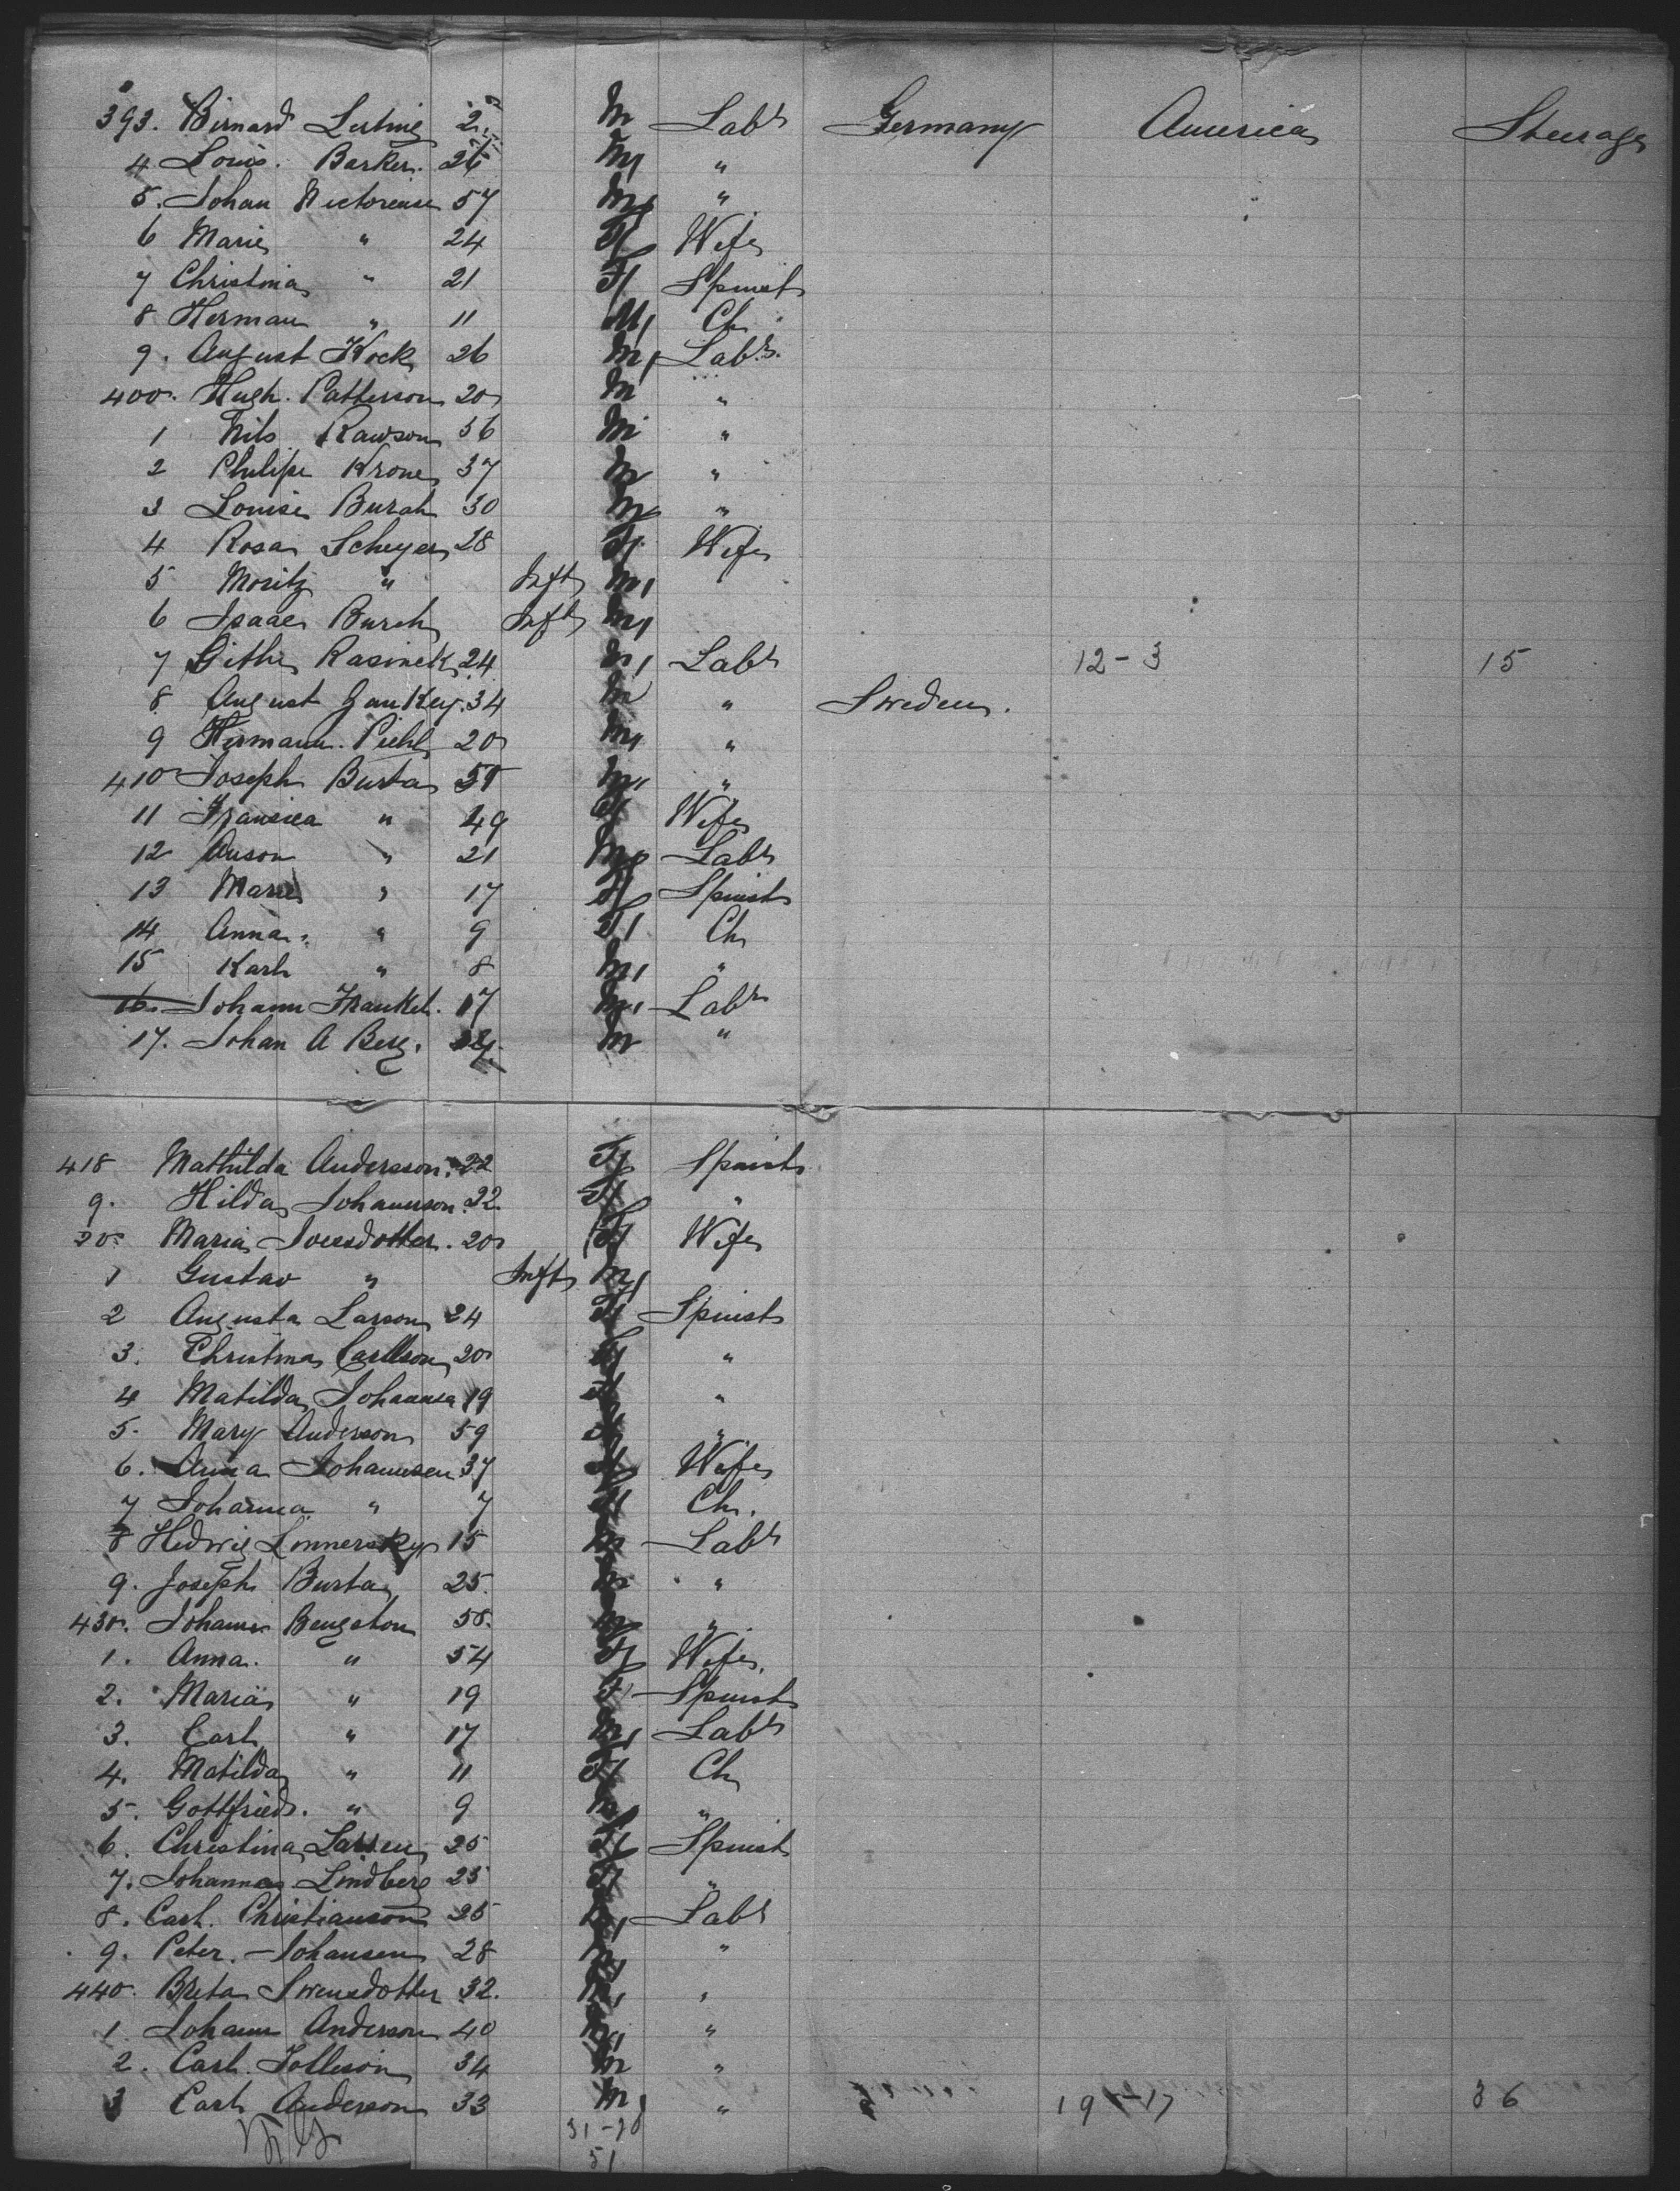 393. Birnard Lusting M Labr Germany America Steerage
4 Louis. Barker. 26 M "
5. Johan Victorense 57 M "
6 Marie " 24 F Wife
7 Christina " 21 F Spinst
8 Herman " 11 M Ch
9. August Kock 26 M Labr.
400. Hugh. Patterson 20 M "
1 Nils Rawson 56 M "
2 Philipe Krone 37 M "
3 Louise Burch 30 M "
4 Rosa Scheyer 28 F Wife
5 Moritz " Inft M
6 Isaac Burch Inft M
7 Githe Rasinek 24 M Labr 12-3 15
8 August Gaukey. 34 M " Sweden.
9 Hermann. Piehl 20 M "
410 Joseph Burta M "
11 Fransica " 49 F Wife
12 Anson " 21 M Labr
13 Marie " 17 F Spinst
14 Anna. " 9 F Ch
15 Karl " 8 M "
16. Johann Frankel. 17 M Labr
17. Johan A Berg. M "
418 Mathilda Andersson. 22 F Spinst
9. Hilda Johannson. 22. F "
20. Maria Iversdotter. 20 F Wife
1 Gustav " Inft M
2 Augusta Larson 24 F Spinst
3. Christina Carllson 20 F "
4 Matilda Johannsa 19 F "
5. Mary Anderson 59 F "
6. Anna Johannsen 37 F Wife
7 Johanna " 7 F Ch.
8 Hedwig Lonnersky 15 M Labr
9. Joseph Burta 25. M "
430. Johann Bengston 58. M "
1. Anna. " 54 F Wife
2. Maria " 19 F Spinst
3. Carl " 17 M Labr
4. Matilda " 11 F Ch
5. Gottfried. " 9 M "
6. Christina Larsen 25 F Spinst
7. Johanna Lindberg 25 F "
8. Carl. Christianson 25 M Labr
9. Peter. Johansen 28 M "
440. Breta Swensdotter 32. M "
1. Johann Anderson 40 M "
2. Carl. Tolleson 34 M "
3 Carl Anderson 33 M " 19-17 36
31-20
51